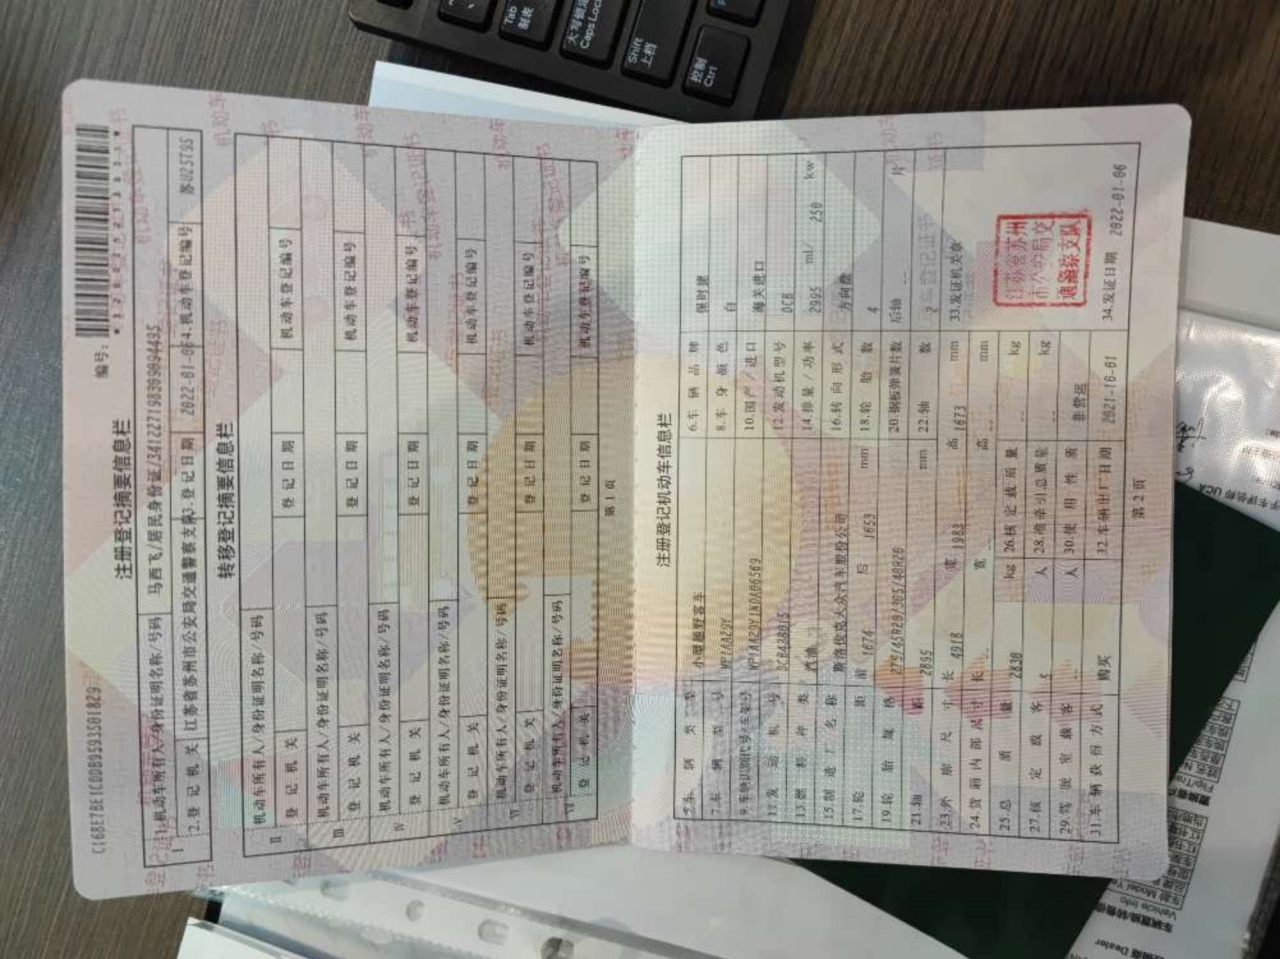 编号:
C168E7BE1CDDB9593501829
注册登记摘要信息栏
I
1.机动车所有人/身份证明名称/号码 马西飞/居民身份证/341227198309094435
2.登记机关 江苏省苏州市公安局交通警察支队 3.登记日期 2022-01-06 4.机动车登记编号 苏U25T95
转移登记摘要信息栏
II
机动车所有人/身份证明名称/号码
登记机关 登记日期 机动车登记编号
III
机动车所有人/身份证明名称/号码
登记机关 登记日期 机动车登记编号
IV
机动车所有人/身份证明名称/号码
登记机关 登记日期 机动车登记编号
V
机动车所有人/身份证明名称/号码
登记机关 登记日期 机动车登记编号
VI
机动车所有人/身份证明名称/号码
登记机关 登记日期 机动车登记编号
VII
机动车所有人/身份证明名称/号码
登记机关 登记日期 机动车登记编号
第1页
注册登记机动车信息栏
5.车辆类型 小型越野客车 6.车辆品牌 保时捷
7.车辆型号 WP1AA29Y 8.车身颜色 白
9.车辆识别代号/车架号 10.国产/进口 海关进口
11.发动机号 12.发动机型号 DCB
13.燃料种类 汽油 14.排量/功率 2995 ml/ 250 kw
15.制造厂名称 斯洛伐克大众汽车股份公司 16.转向形式 方向盘
17.轮距 前 1674 后 1653 mm 18.轮胎数 4
19.轮胎规格 275/45R20/305/40R20 20.钢板弹簧片数 后轴 -- 片
21.轴距 2895 mm 22.轴数 2
23.外廓尺寸 长 4918 宽 1983 高 1673 mm 33.发证机关章
24.货厢内部尺寸 长 -- 宽 -- 高 -- mm
25.总质量 2830 kg 26.核定载质量 -- kg
27.核定载客 5 人 28.准牵引总质量 -- kg
29.驾驶室载客 -- 人 30.使用性质 非营运
31.车辆获得方式 购买 32.车辆出厂日期 2021-10-01 34.发证日期 2022-01-06
江苏省苏州
市公安局交
通警察支队
第2页
Tab
制表
大写锁定
Caps Lock
Shift
上档
控制
Ctrl
Vehicle Info
Dealer
UCA